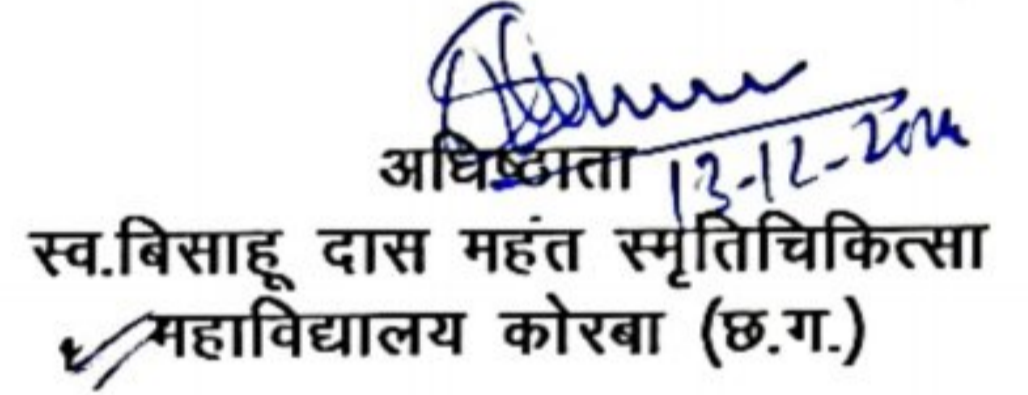 अधिष्ठाता
13-12-2024
स्व.बिसाहू दास महंत स्मृतिचिकित्सा
महाविद्यालय कोरबा (छ.ग.)